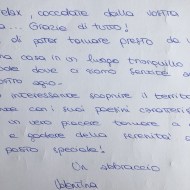 relax, coccolate dalla vostra
a... Grazie di tutto!
di poter tornare presto da
na casa in un luogo tranquillo
dove ci siamo sentite
interessante scoprire il territ
con i suoi paesini caratteris
un vero piacere tornare a
e godere della serenità
posto speciale!
Un abbraccio